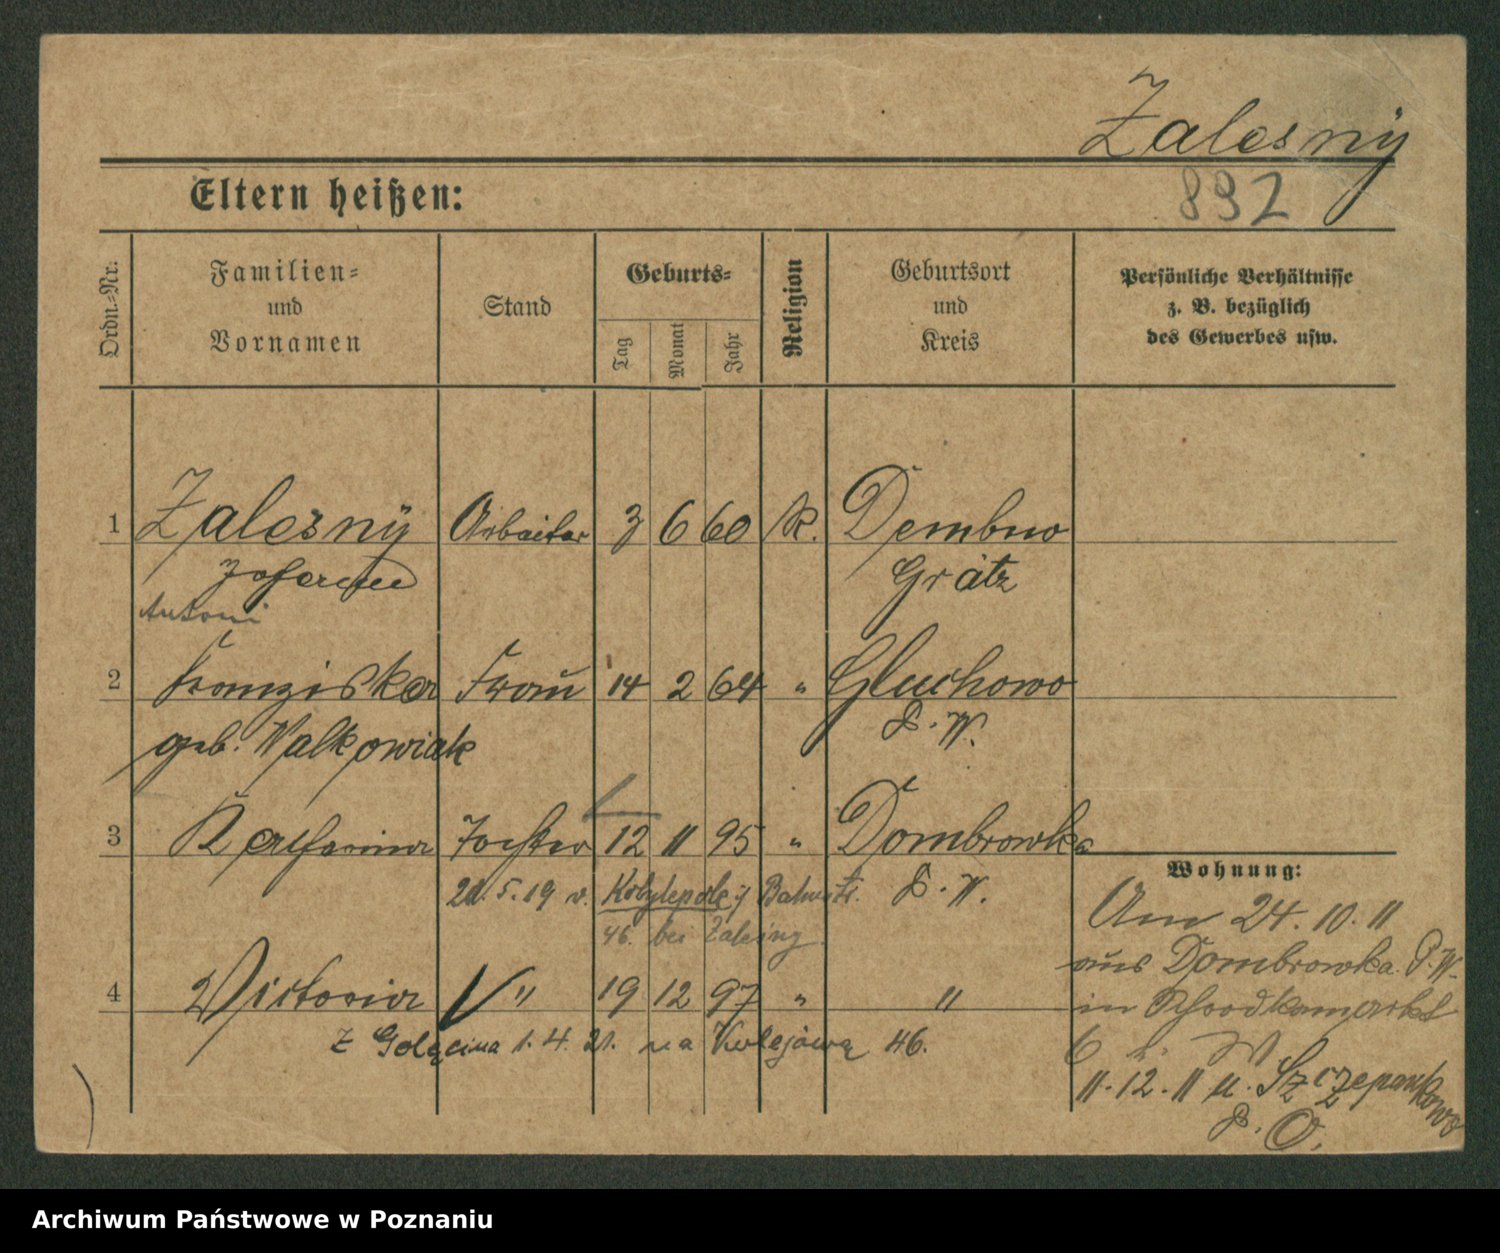 Zalesny
892
Eltern heißen:
Ordn.-Nr.
Familien-
und
Vornamen
Stand
Geburts-
Tag
Monat
Jahr
Religion
Geburtsort
und
Kreis
Persönliche Verhältnisse
z. B. bezüglich
des Gewerbes usw.
1 Zalesny Arbeiter 3 6 60 K. Dembno
Grätz
Antoni
2 Franziska Frau 14 2 64 " Gluchowo
geb. Walkowiak P. W.
3 Katharina Tochter 12 11 95 " Dombrowka
21. 5. 19 v. Kobylepole P. W.
46. bei Zalesny
4 Victoria " 19 12 97 " "
Z Golęcina 1. 4. 21. na Kolejową 46.
Wohnung:
Am 24. 10. 11
aus Dombrowka P. W.
in
6
11. 12. 11 n. Szczepankowo
P. O.
Archiwum Państwowe w Poznaniu